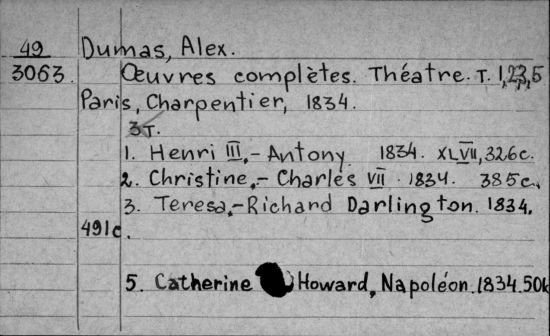 49 Dumas, Alex.
3063. Œuvres complètes. Théatre. T. 1,2,3,5
Paris, Charpentier, 1834.
3т.
1. Henri III,- Antony 1834. XLVII, 326c.
2. Christine,- Charles VII. 1834. 385c.
3. Teresa,- Richard Darlington. 1834.
491c.
5. Catherine Howard, Napoléon. 1834. 50k